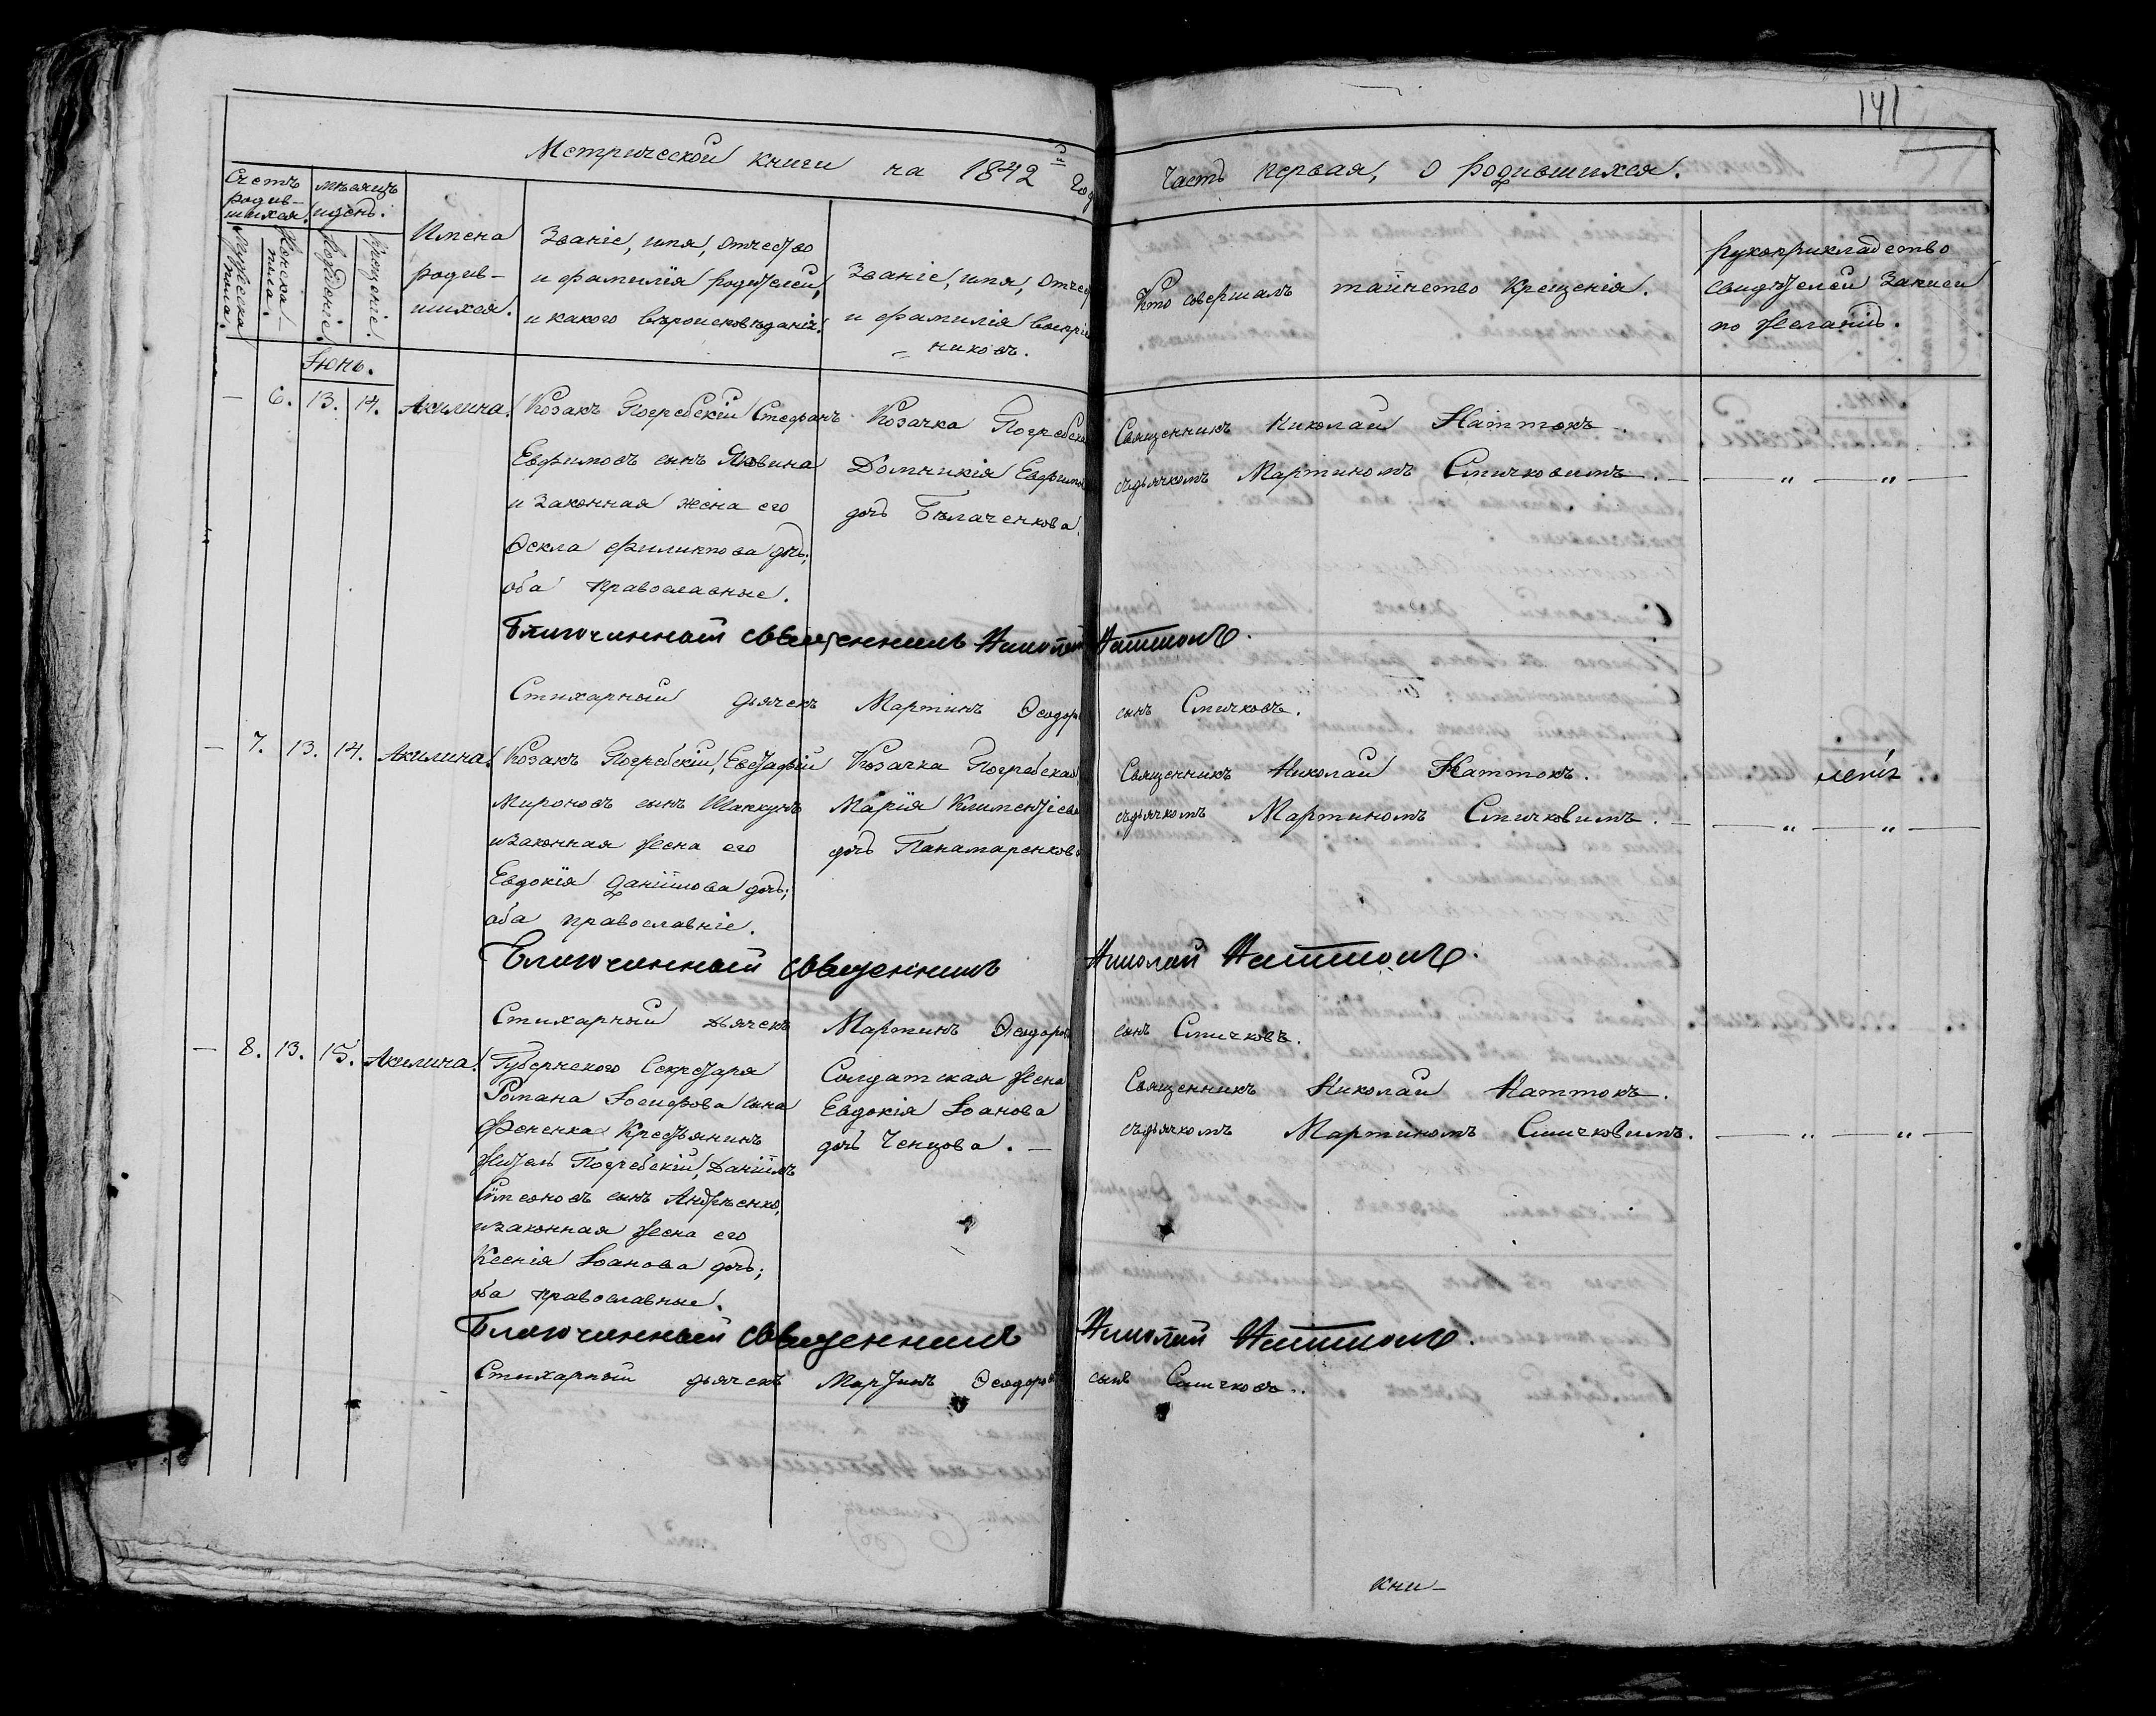 141
Метрической книги на 1842й год
Часть первая, о родившихся.
Счетъ родив-шихся.
Мѣсяцъ и день.
Мужеска пола.
Женска пола.
Рожденіе.
Крещеніе.
Имена
родив-
шихся.
Званіе, имя, отчество
и фамилія родителей,
и какого вѣроисповѣданія.
Званіе, имя, отчес
и фамилія воспріе
никовъ.
Кто совершалъ таинство крещенія.
Рукоприкладство
свидѣтелей записи
по желанію.
Іюнь.
— 6. 13. 14. Акилина.
Козакъ Погребскій Стефанъ
Евфимовъ сынъ
и законная жена его
Ѳекла Филиппова дочь;
оба православные.
Козачка Погребска
Домникія Евфимо
дочь Бѣлаченкова.
Священникъ Николай Наттокъ.
съ дьячкомъ Мартиномъ Смичковимъ. — „ — „ —
Благочинный священникъ Николай Наттокъ.
Стихарный дьячекъ Мартинъ Ѳеодоро сынъ Смичковъ.
— 7. 13. 14. Акилина.
Козакъ Погребскій, Евстафій
Мироновъ сынъ Шаккунъ
и законная жена его
Евдокія Даніилова дочь;
оба православніе.
Козачка Погребская
Марія Климентіева
дочь Панамаренкова
Священникъ Николай Наттокъ.
съ дьячкомъ Мартиномъ Смичковимъ. — „ — „ —
Благочинный священникъ Николай Наттокъ.
Стихарный дьячекъ Мартинъ Ѳеодоров сынъ Смичковъ.
— 8. 13. 15. Акилина.
Губернского Секретаря
Романа Іосифова сына
Фененка Крестьянинъ
житель Погребскій, Даніилъ
Симеоновъ сынъ Андрѣенко,
и законная жена его
Ксенія Іоанова дочь;
оба православные.
Солдатская жена
Евдокія Іоанова
дочь Ченцова. —
Священникъ Николай Наттокъ.
съ дьячкомъ Мартиномъ Смичковимъ. — „ — „ —
Благочинный священникъ Николай Наттокъ.
Стихарный дьячекъ Мартинъ Ѳеодоров сынъ Смичковъ.
кни-